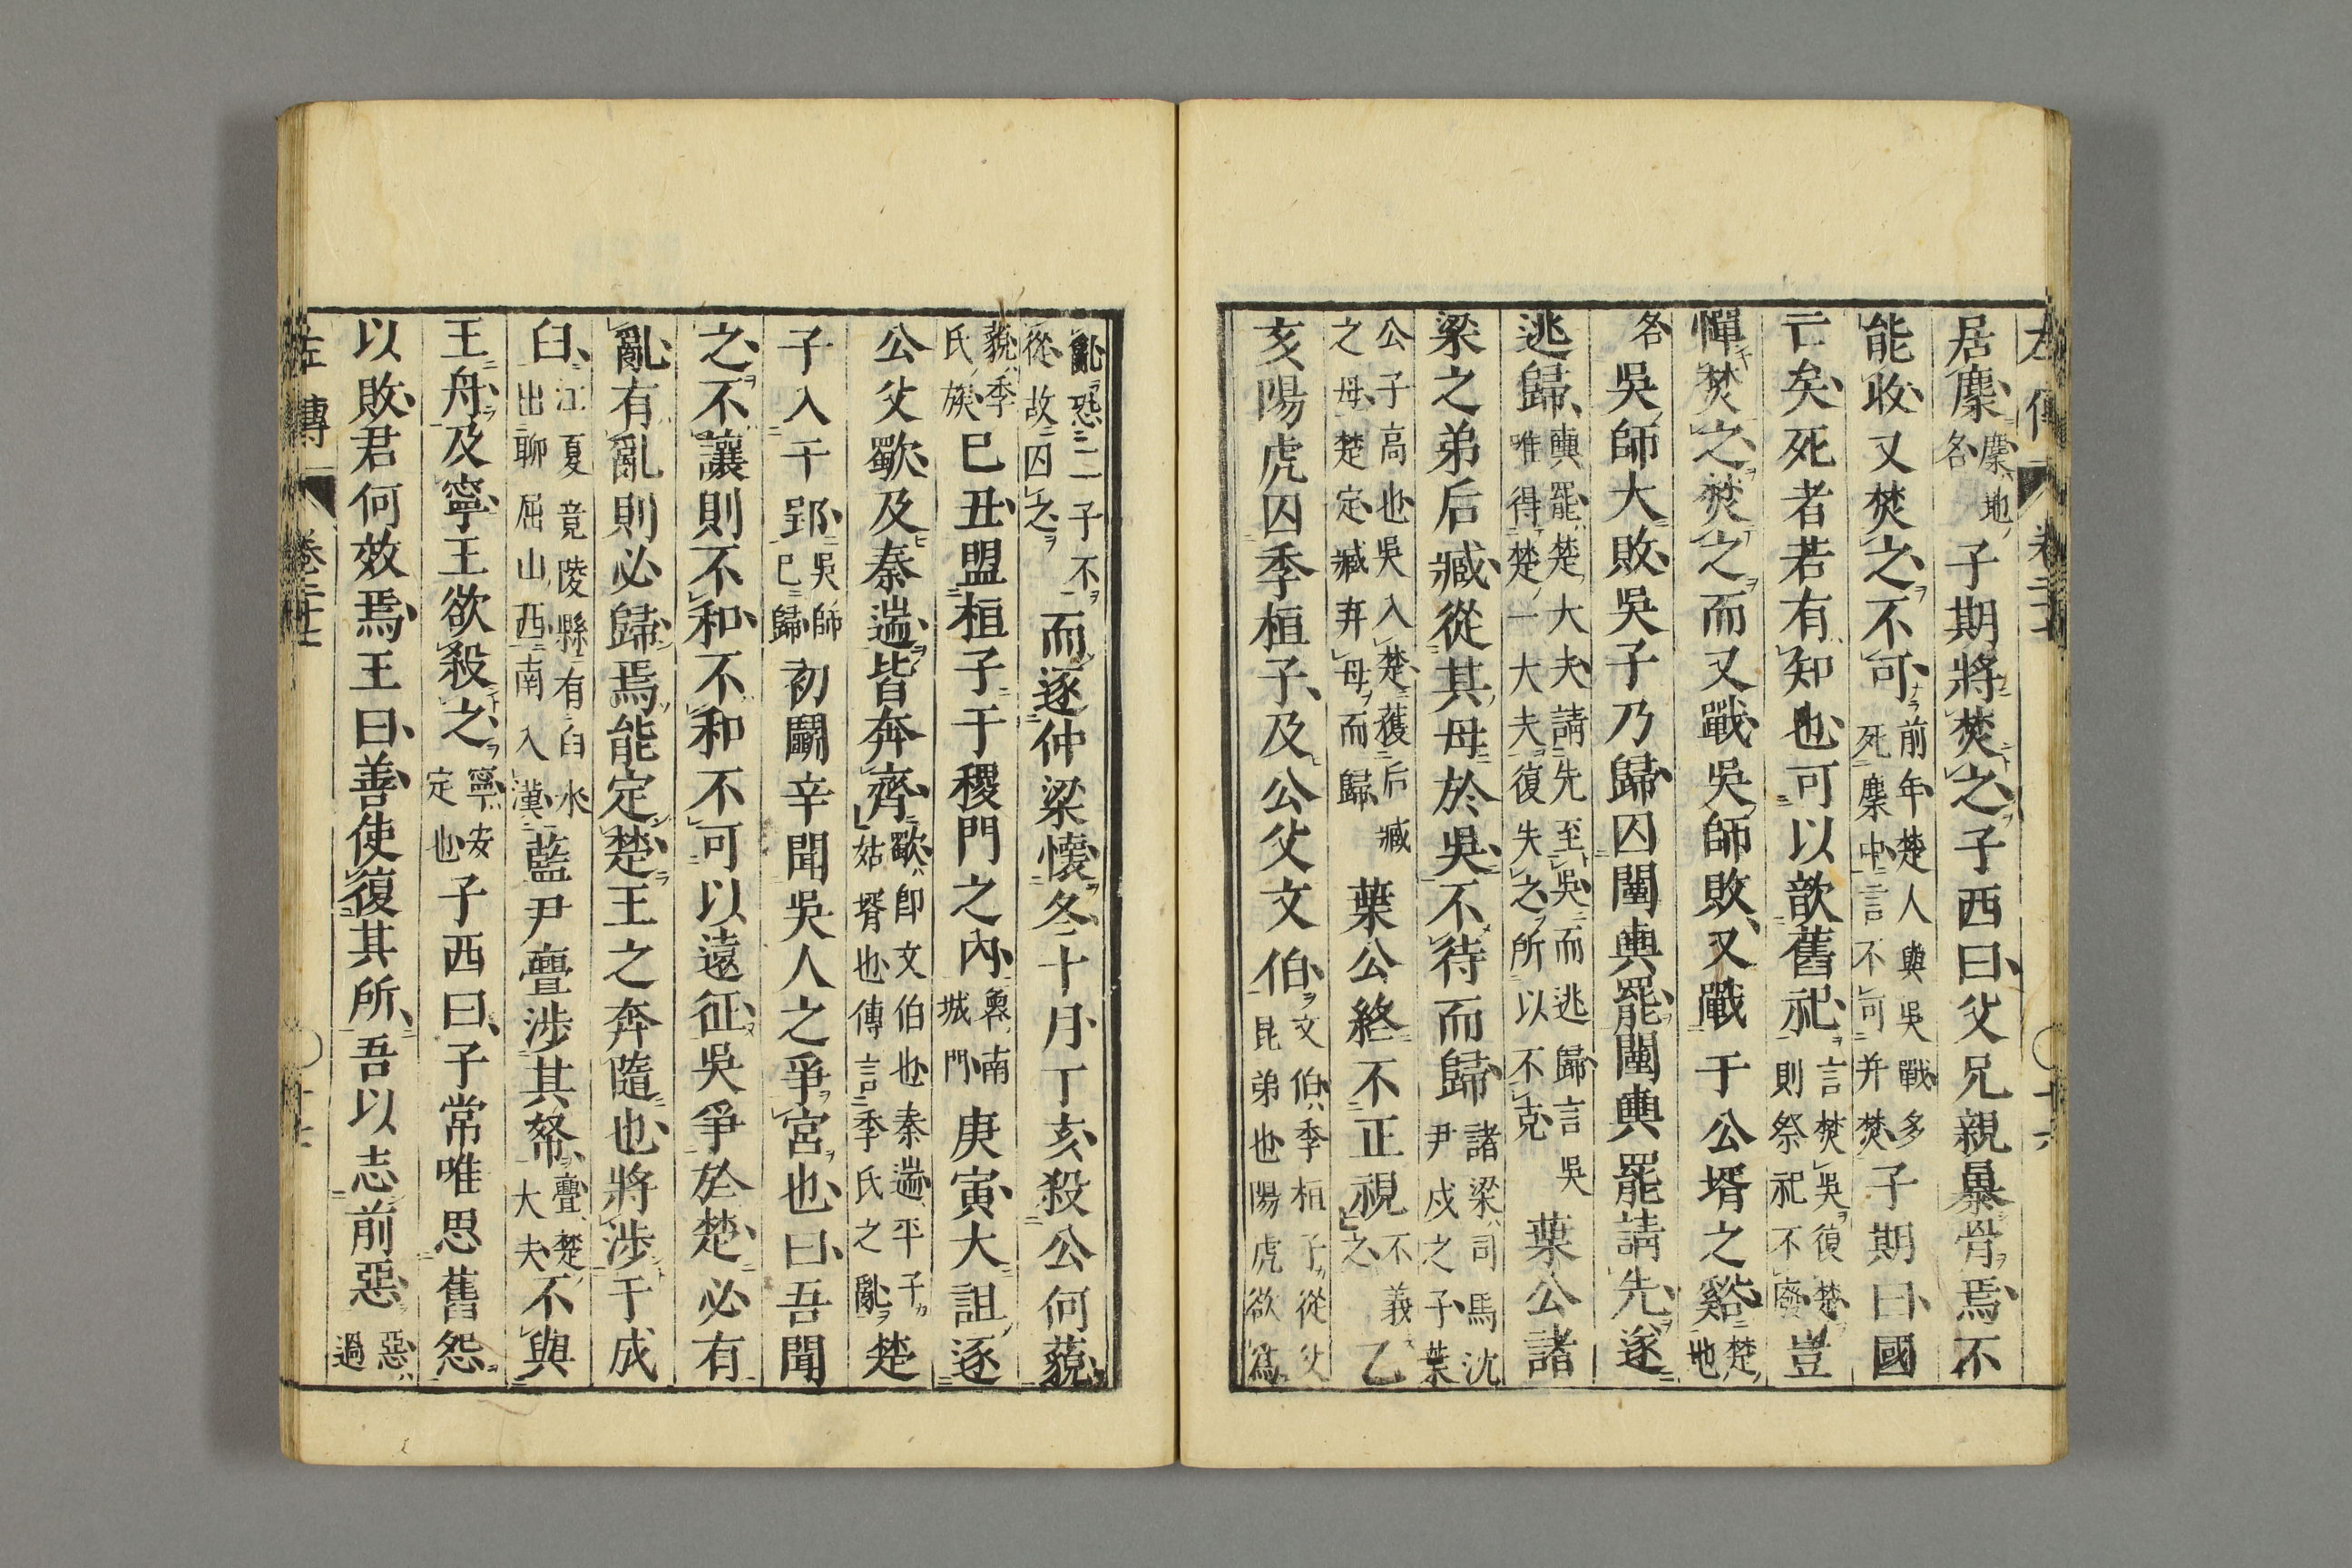 左傳 卷二十七 十六
居麇麇地名子期將焚之子西曰父兄親暴骨焉不
能收又焚之不可前年楚人與吳戰多死麇中言不可并焚子期曰國
亡矣死者若有知也可以歆舊祀言焚吳復楚則祭祀不廢豈
憚焚之焚之而又戰吳師敗又戰于公壻之谿楚地
名吳師大敗吳子乃歸囚闉輿罷闉輿罷請先遂
逃歸輿罷楚大夫請先至吳而逃歸言吳唯得楚一大夫復失之所以不克葉公諸
梁之弟后臧從其母於吳不待而歸諸梁司馬沈尹戌之子葉
公子高也吳入楚獲后臧之母楚定臧弃母而歸葉公終不正視不義之乙
亥陽虎囚季桓子及公父文伯文伯季桓子從父昆弟也陽虎欲爲
亂恐二子不從故囚之而逐仲梁懷冬十月丁亥殺公何藐
藐季氏族己丑盟桓子于稷門之內魯南城門庚寅大詛逐
公父歜及秦遄皆奔齊歜即文伯也秦遄平子姑壻也傳言季氏之亂楚
子入于郢吳師已歸初鬬辛聞吳人之爭宮也曰吾聞
之不讓則不和不和不可以遠征吳爭於楚必有
亂有亂則必歸焉能定楚王之奔隨也將涉于成
臼江夏竟陵縣有臼水出聊屈山西南入漢藍尹亹涉其帑亹楚大夫不與
王舟及寧王欲殺之寧安定也子西曰子常唯思舊怨
以敗君何效焉王曰善使復其所吾以志前惡惡過
左傳 卷二十七 十七